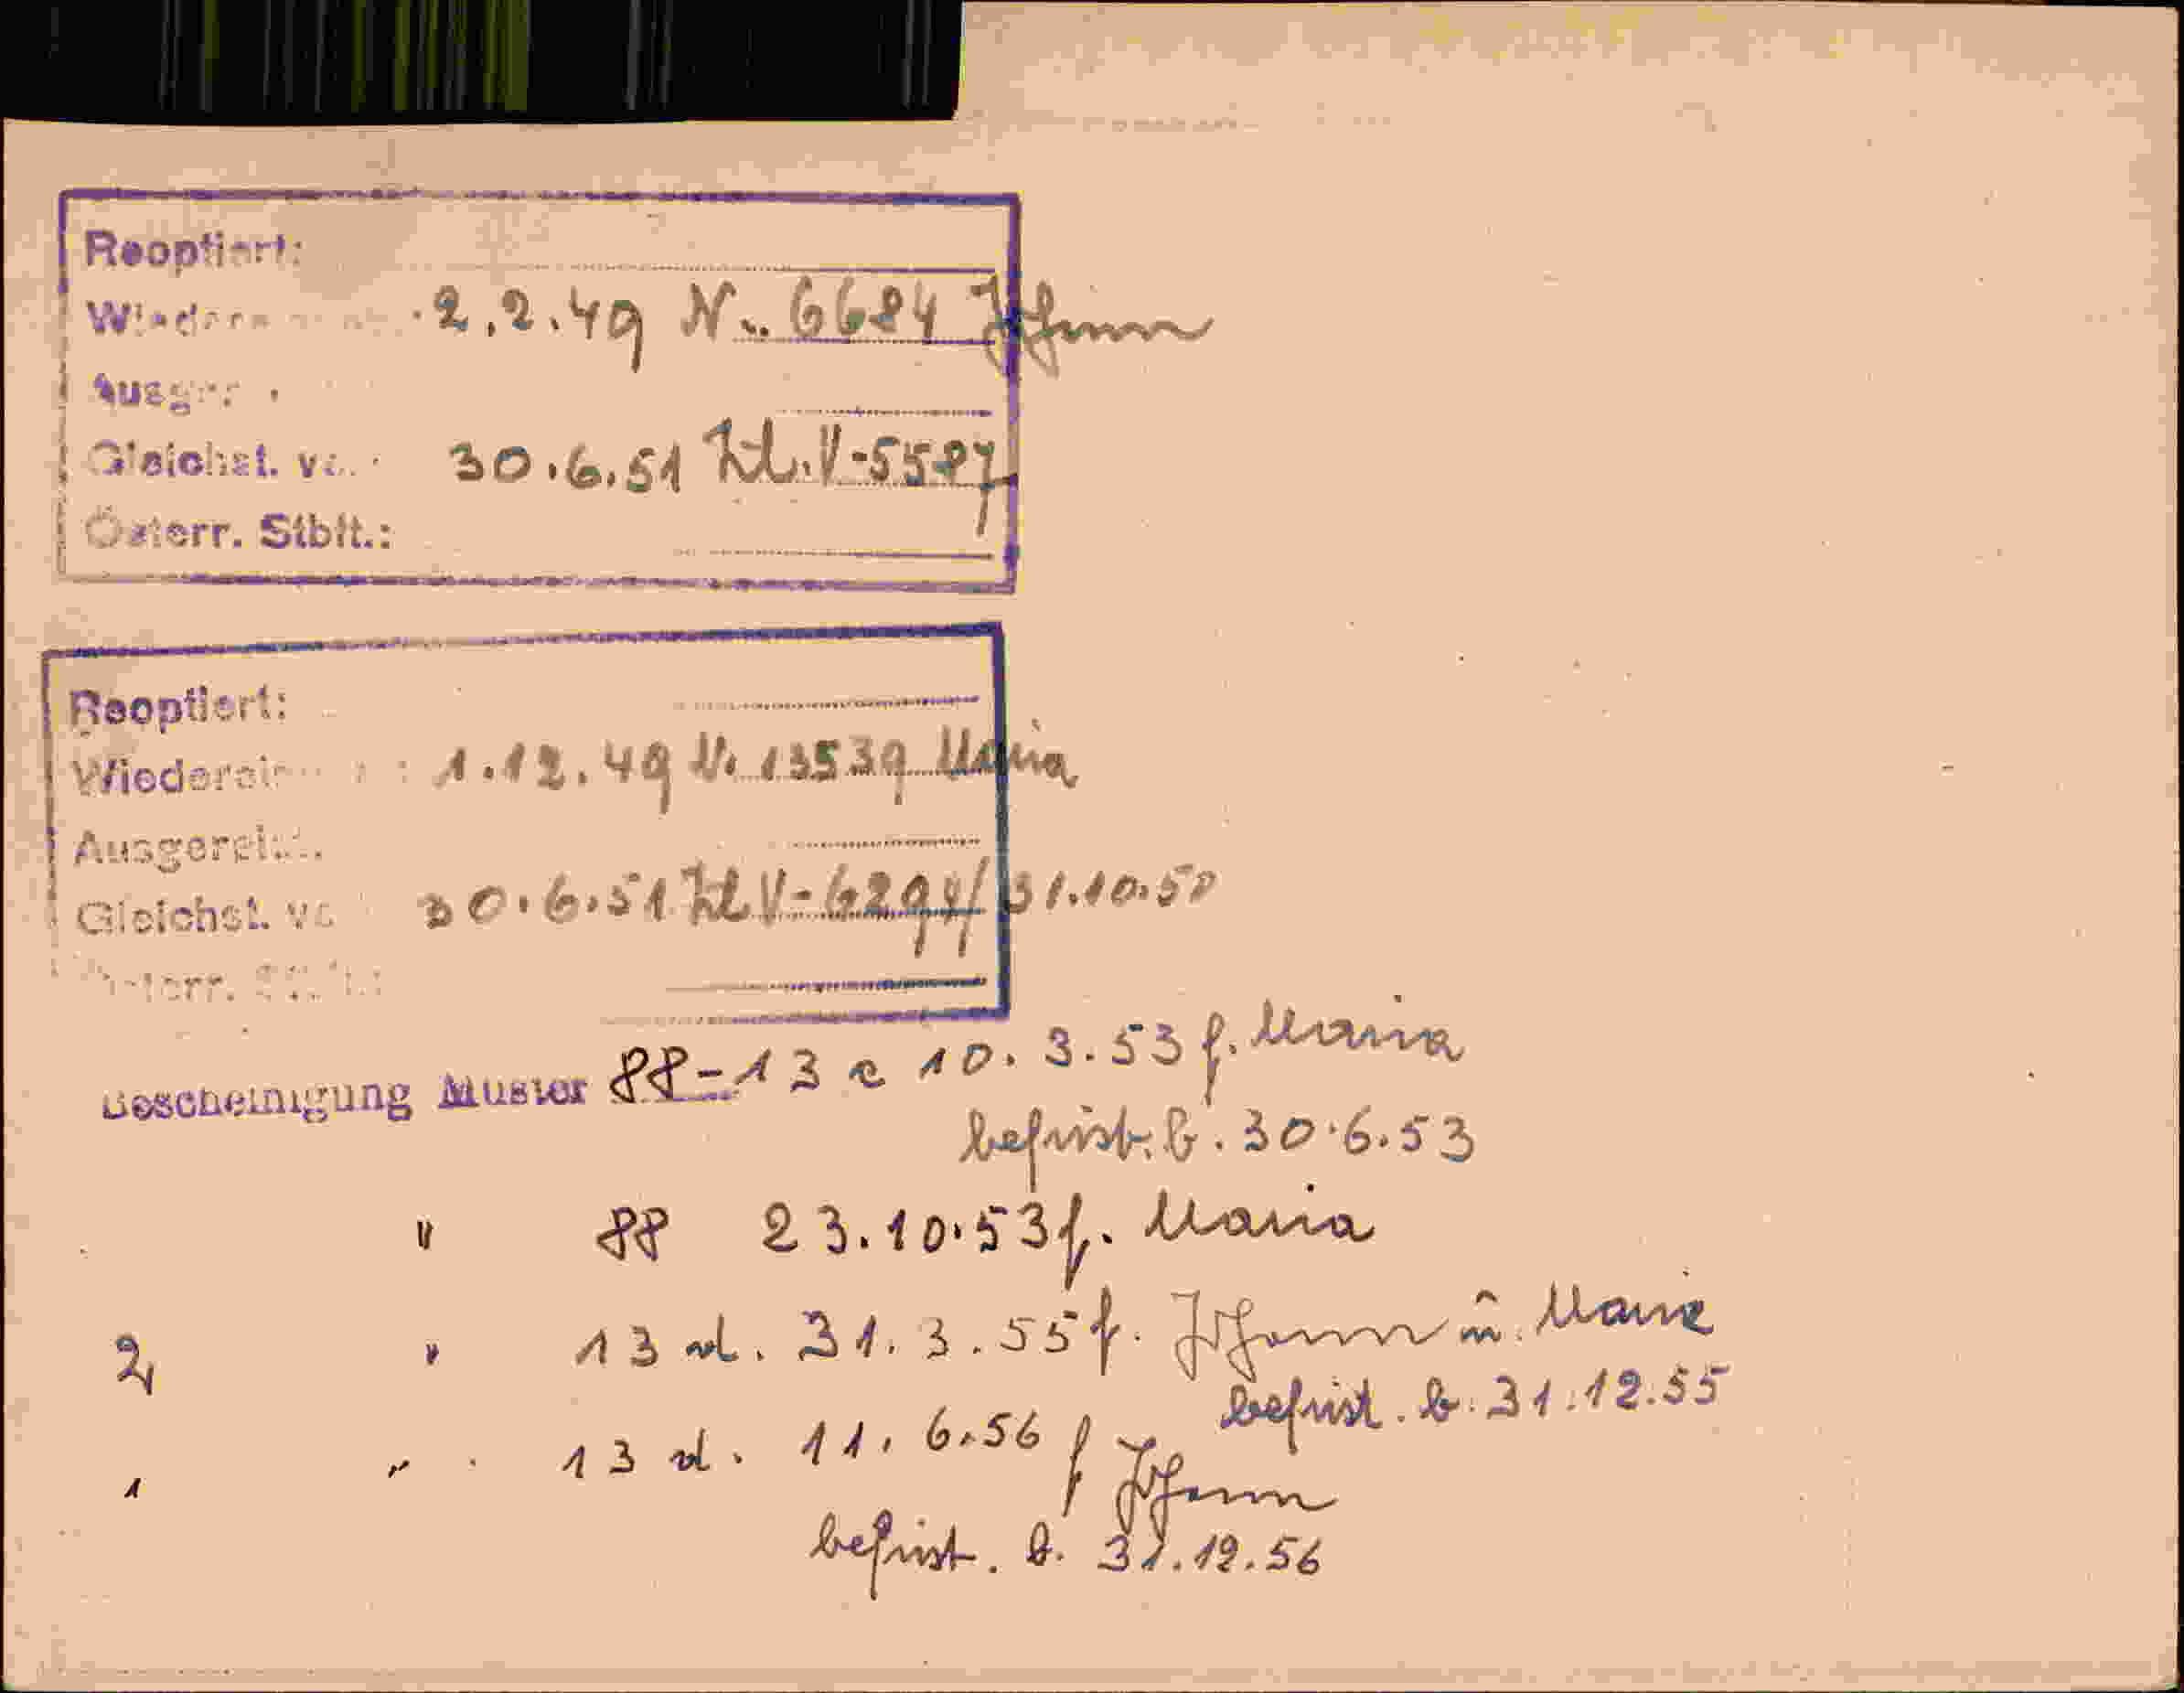 Reoptiert:
2.2.49 N. 6684 Johann
Gleichst. v. 30.6.51 Zl. V-5587
Österr. Stblt.:
Reoptiert:
1.12.49 N. 13539 Maria
Gleichst. v. 30.6.51 Zl V-6294/31.10.50
Bescheinigung Muster 88-13 c 10.3.53 f. Maria
befrist. b. 30.6.53
" 88 23.10.53 f. Maria
2 " 13 d. 31.3.55 f. Johann u. Maria
befrist. b. 31.12.55
1 " 13 d. 11.6.56 f Johann
befrist. b. 31.12.56